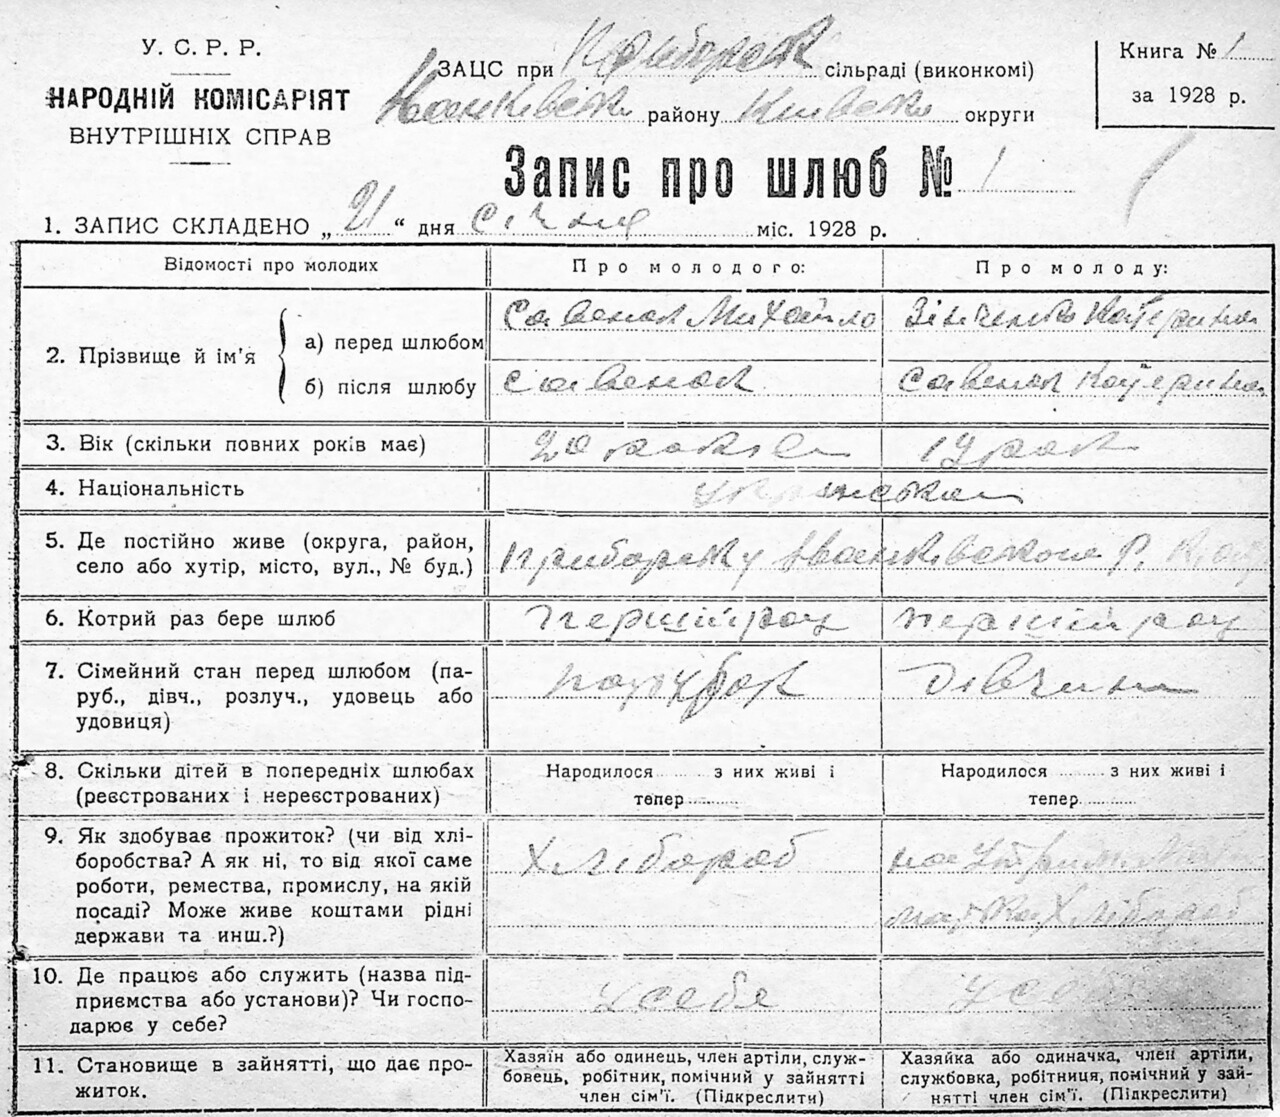 У. С. Р. Р.
НАРОДНІЙ КОМІСАРІЯТ
ВНУТРІШНІХ СПРАВ
ЗАЦС при Приборск сільраді (виконкомі)
Іванківськ району Київськ округи
Книга № 1
за 1928 р.
Запис про шлюб № 1
1. ЗАПИС СКЛАДЕНО „ 21 “ дня січня міс. 1928 р.
Відомості про молодих Про молодого: Про молоду:
2. Прізвище й ім'я
а) перед шлюбом Савенок Михайло Зінченко Катерина
б) після шлюбу Савенок Савенок Катерина
3. Вік (скільки повних років має) 20 років 19 рок
4. Національність Українська
5. Де постійно живе (округа, район, село або хутір, місто, вул., № буд.) Приборську Іванківского Р.
6. Котрий раз бере шлюб перший раз перший раз
7. Сімейний стан перед шлюбом (па-
руб., дівч., розлуч., удовець або
удовиця)
парубок дівчина
8. Скільки дітей в попередніх шлюбах
(реєстрованих і нереєстрованих)
Народилося з них живі і
тепер
Народилося з них живі і
тепер
9. Як здобуває прожиток? (чи від хлі-
боробства? А як ні, то від якої саме
роботи, ремества, промислу, на якій
посаді? Може живе коштами рідні
держави та инш.?)
Хлібороб
на утриманні
матка Хлібороб
10. Де працює або служить (назва під-
приємства або установи)? Чи госпо-
дарює у себе?
у себе у себе
11. Становище в зайнятті, що дає про-
житок.
Хазяїн або одинець, член артіли, служ-
бовець, робітник, помічний у зайнятті
член сім'ї. (Підкреслити)
Хазяйка або одиначка, член артіли,
службовка, робітниця, помічний у зай-
нятті член сім'ї. (Підкреслити)